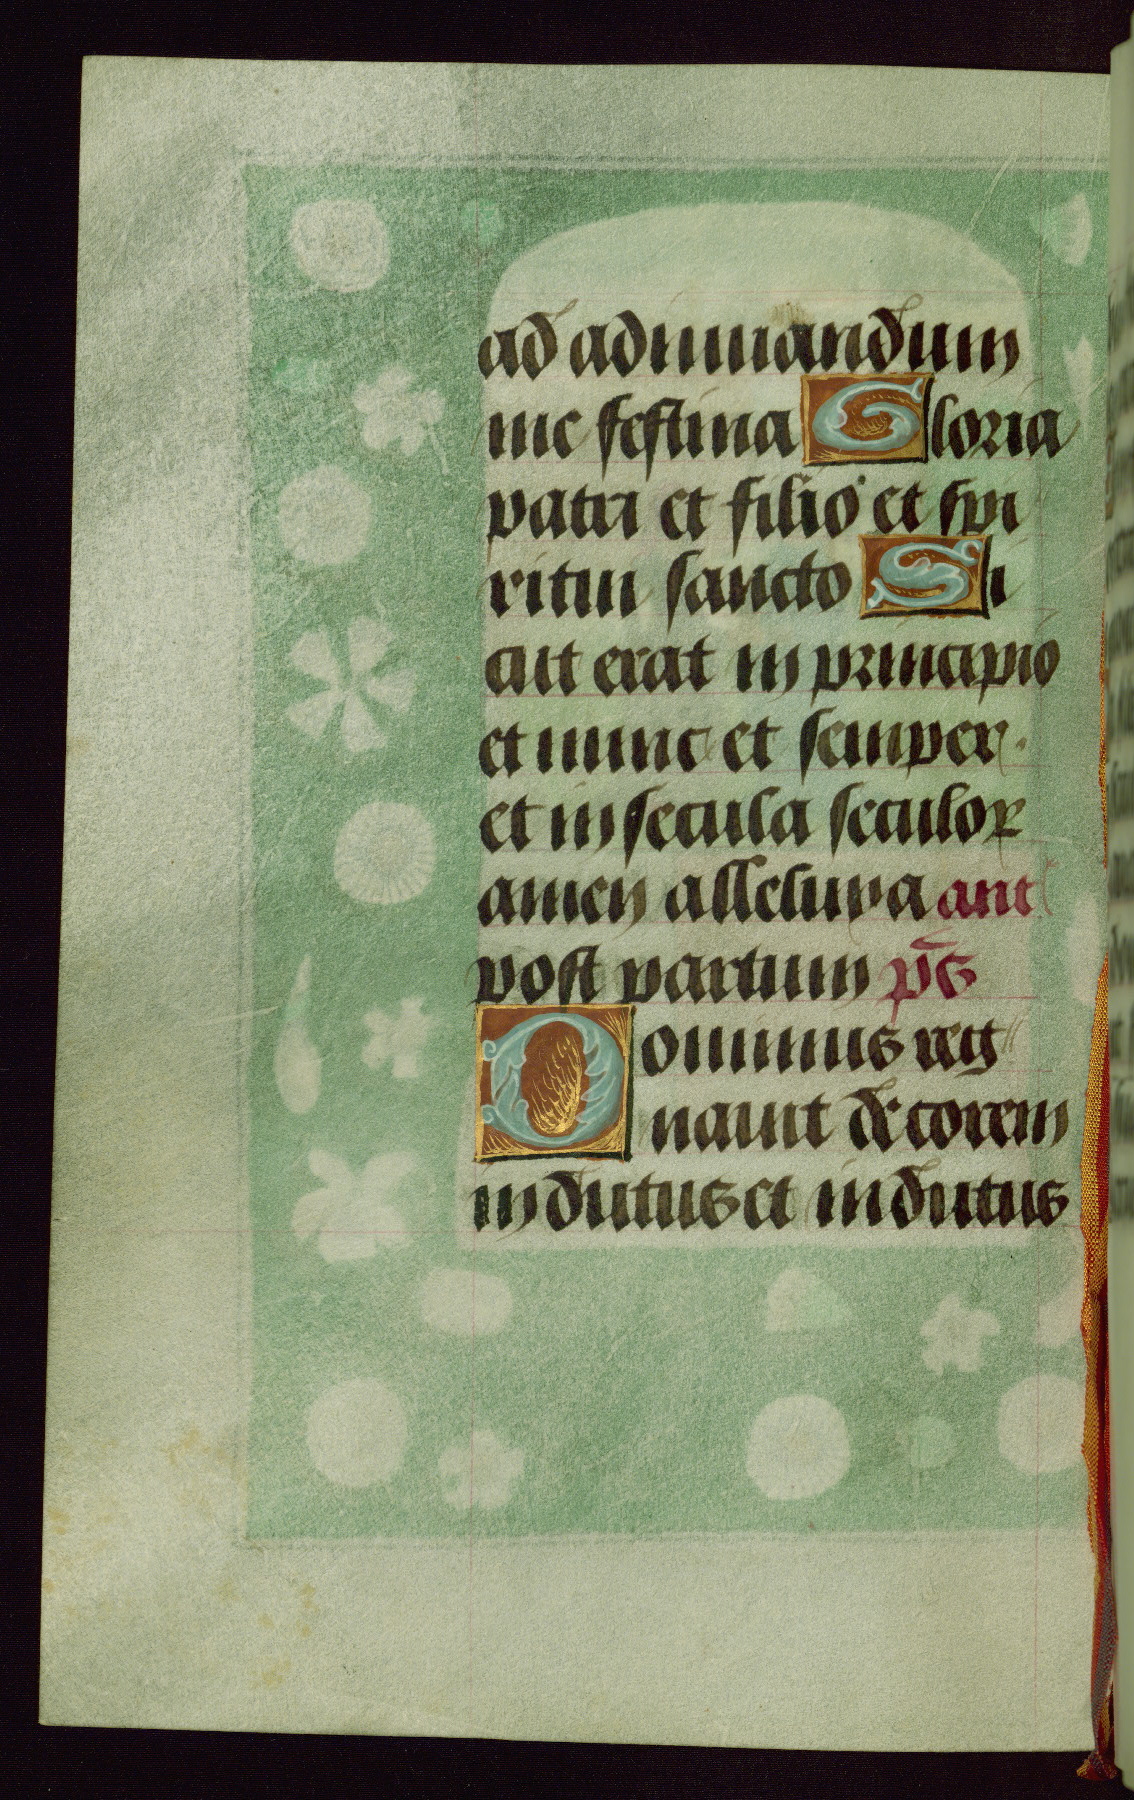 ad adiuuandum
me festina Gloria
patri et filio et spi
ritui sancto Si
cut erat in principio
et nunc et semper.
et in secula seculoꝝ
amen alleluya ant
post partum p̄s
Dominus reg
nauit decorem
indutus et indutus